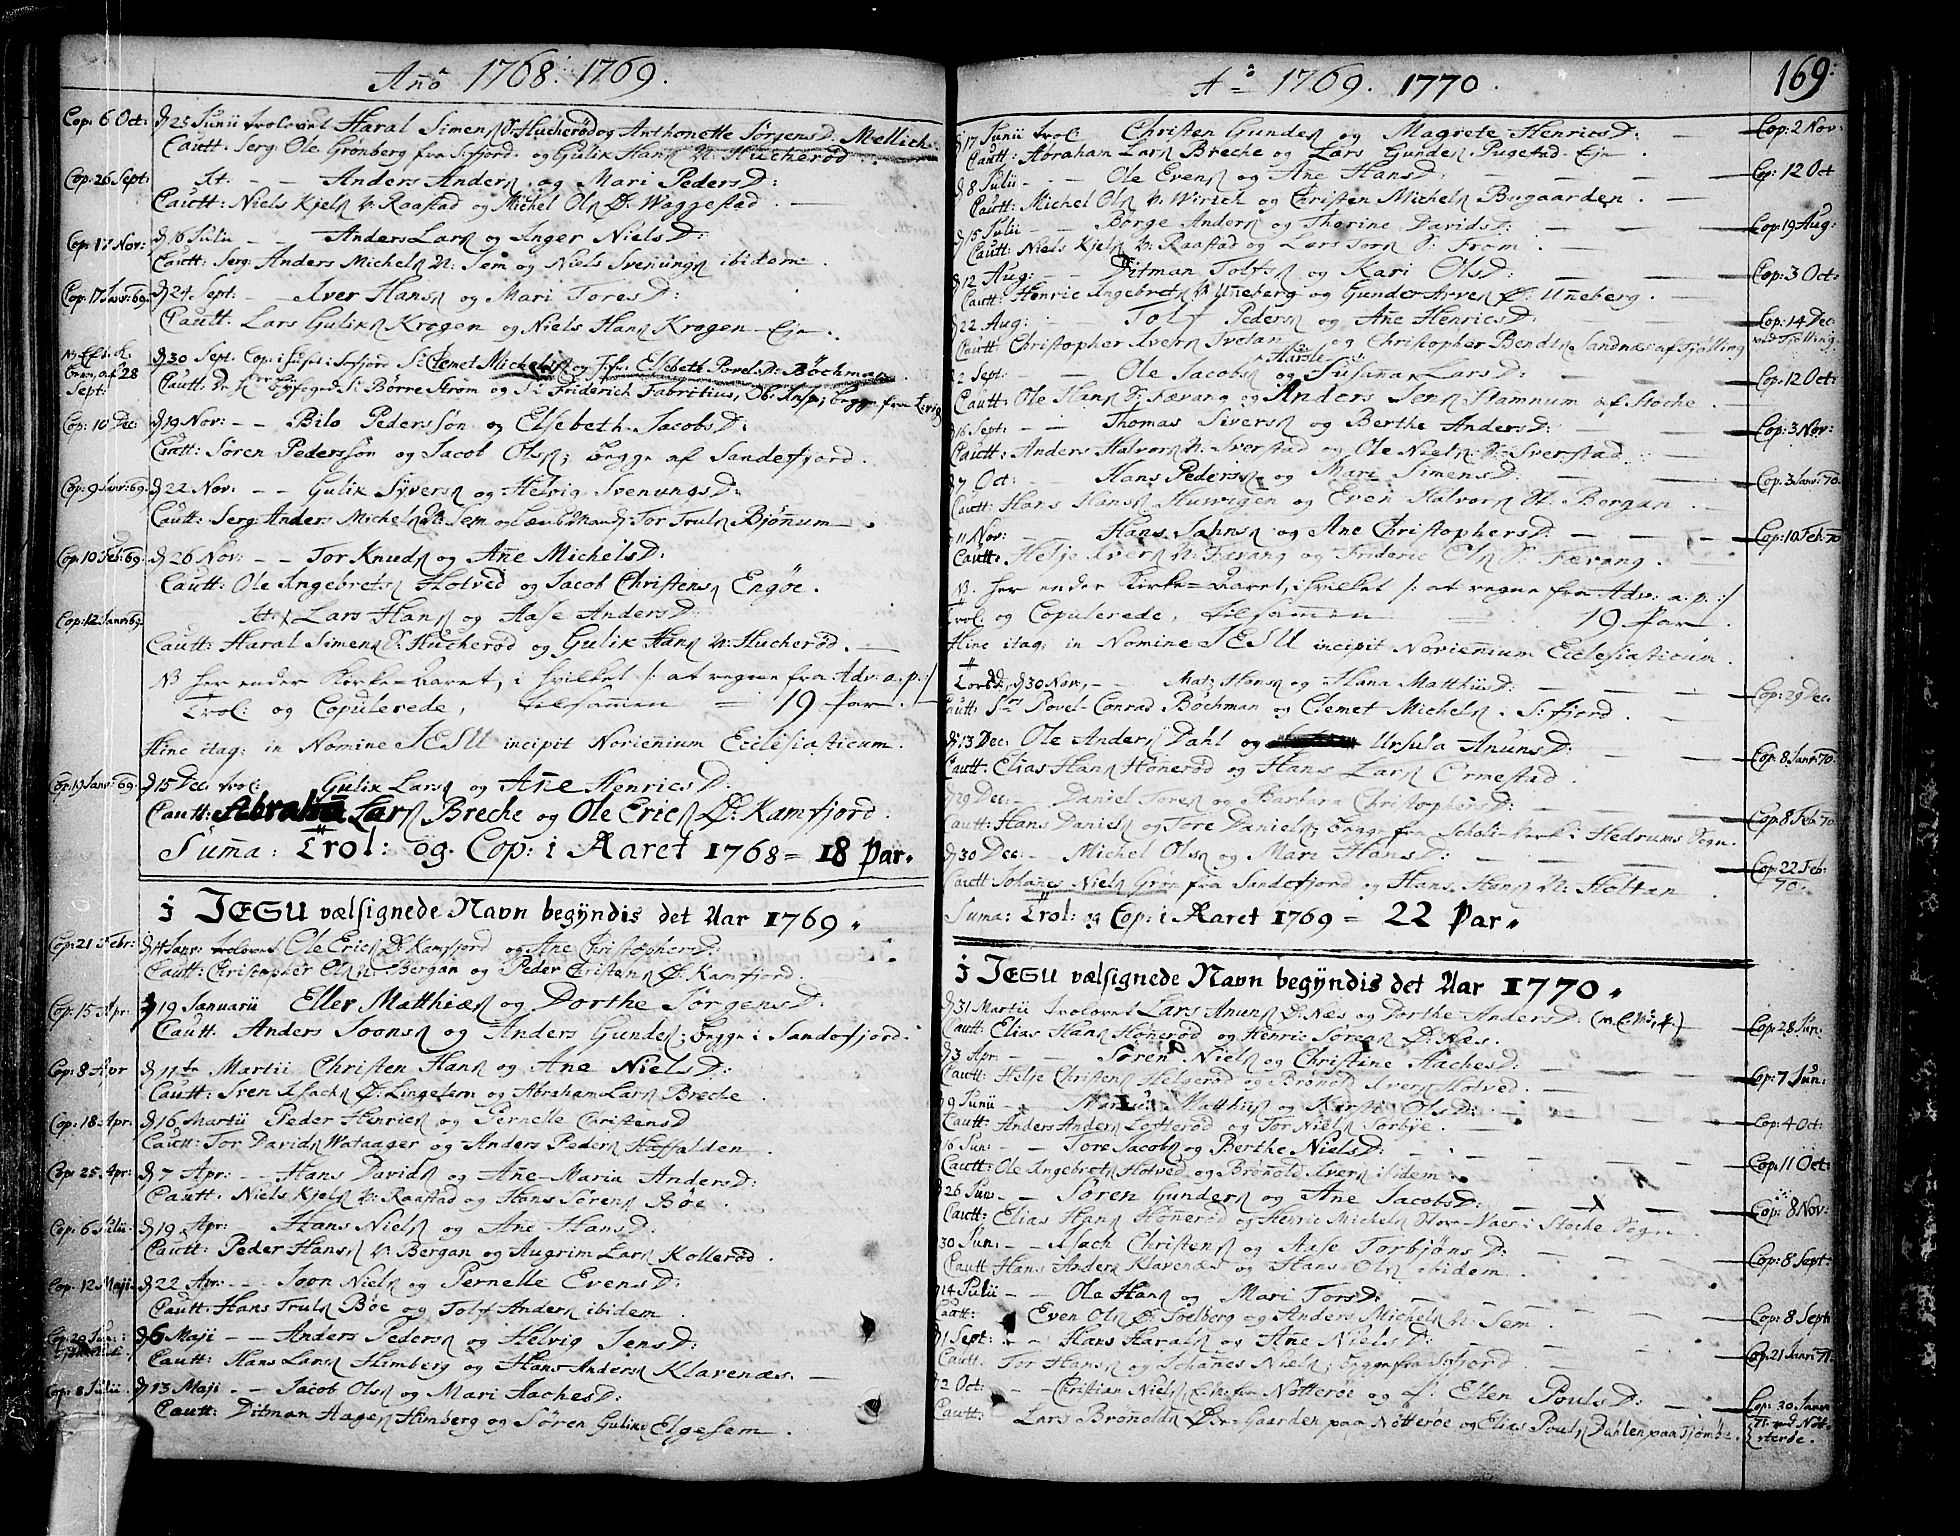 Año 1768. 1769.
Cop: 6 Oct: d 25 Junii trolovet Haral Simens S: Hucherød og Anthonette Jørgens D. Mellich
Cautt: Serg: Ole Grønberg fra S:fjord. og Gulik Hans N: Hucherød.
Cop: 26 Sept: It: - - Anders Anders og Mari Peders D:
Cautt: Niels Kjels N: Raastad og Michel Ols Ø: Waggestad.
Cop: 17 Nov: d 16 Julii - - Anders Lars og Inger Niels D:
Cautt: Serg: Anders Michels N: Sem og Niels Svenungs ibidem.
Cop: 17 Janv: 69. d 24 Sept: - Iver Hans og Mari Tores D:
Cautt: Lars Guliks Krogen og Niels Hans Krogen Eje.
28 Sept: d 30 Sept. Cop: i Huset i S:fjord Sr: Clemet Michels og Jfr: Elsebeth Povels D: Bøchman
Cautt: Sr: Børre Strøm og Sr: Friderich Fabritius, begge fra
Cop: 10 Dec: d 19 Nov: - - Bilo Pedersøn og Elsebeth Jacobs D:
Cautt: Søren Pedersøn og Jacob Ols; begge af Sandefjord.
Cop: 9 Janv: 69. d 22 Nov: - - Gulik Syvers og Helvig Svenungs D:
Cautt: Serg: Anders Michels N: Sem og Tor Truls Bjønum.
Cop: 10 Feb: 69. d 26 Nov: - - Tor Knuds og Añe Michels D:
Cautt: Ole Ingebrets Hotved og Jacob Christens Engøe.
Cop: 12 Janv: 69. It: Lars Hans og Aase Anders D:
Cautt: Haral Simens S: Hucherød og Gulik Hans N: Hucherød.
NB her ender Kirke-Aaret, i hvilket /: at regne fra Adv: a. p: /
Trol: og Copulerede, tilsammen = 19 Par.
Hinc itaq; in Nomine JESU incipit Noviennium Ecclesiasticum.
Cop: 19 Janv: 69. d 15 Dec: trol: Gulik Lars og Añe Henrics D:
Cautt: Abraham Lars Breche og Ole Erics Ø: Kamfjord.
Suma: Trol: og Cop: i Aaret 1768 = 18 Par.
J JESU vælsignede Navn begyndis det Aar 1769.
Cop: 21 Febr: d 4 Janv: trolovet Ole Erics Ø: Kamfjord og Ane Christophers D:
Cautt: Christopher Ols N: Bergan og Peder Christens Ø: Kamfjord.
Cop: 15 Apr: d 19 Januarii Eller Matthiæs og Dorthe Jørgens D:
Cautt: Anders Joons og Anders Gundes; begge i Sandefjord.
Cop: 8 Apr d 11te Martii Christen Hans og Ane Niels D:
Cautt: Sven Isachs Ø: Lingelem og Abraham Lars Breche.
Cop: 18 Apr: d 16 Martii Peder Henrics og Pernelle Christens D
Cautt: Tor Davids Wataager og Anders Peders Hæffalden.
Cop: 25 Apr: d 7 Apr: - Hans Davids og Añe-Maria Anders D:
Cautt: Niels Kjels N: Raastad og Hans Sørens Bøe.
Cop: 6 Julii: d 19 Apr: - Hans Niels og Ane Hans D:
Cautt: Peder Hans N: Bergan og Augrim Lars Kollerød.
Cop: 12 Maji. d 22 Apr: - - Joon Niels og Pernelle Evens D:
Cautt: Hans Truls Bøe og Tolf Anders ibidem
Cop: 20 Jun: d 6 Maji - - Anders Peders og Helvig Jens D:
Cautt: Hans Lars Himberg og Hans Anders Klavenæs.
Cop: 8 Julii. d 13 Maji - - Jacob Ols og Mari Aaches D:
Cautt: Ditman Aages Himberg og Søren Guliks Elgesem.
Ao 1769. 1770.
169.
d 17 Junii trol: Christen Gundes og Magrete Henrics D: Cop: 2 Nov:
Cautt: Abrahan Lars Breche og Lars Gundes Pugestad Eje.
d 8 Julii - - Ole Evens og Ane Hans D: Cop: 12 Oct
Cautt: Michel Ols N: Wirich og Christen Michels Bugaarden.
d 15 Julii - Børge Anders og Thorine Davids D: Cop: 19 Aug:
Cautt: Niels Kjels N: Raastad og Lars Tors S: From.
d 12 Aug: - - Ditman Tolfs og Kari Ols D: Cop: 3 Oct:
Cautt: Henric Ingebrets N: Uñeberg og Gunder Arves Ø: Uñeberg.
d 22 Aug: Tolf Peders og Añe Henrics D: Cop: 14 Dec: ved Tjølling.
Cautt: Christopher Ivers og Christopher Bendts Sandnæs af Tjølling
d 2 Sept: - Ole Jacobs og Susaña Lars D: Cop: 12 Oct:
Cautt: Ole Hans S: Fævang og Anders Jens Stamnum af Stoche.
d 16 Sept: - - Thomas Sivers og Berthe Anders D: Cop: 3 Nov:
Cautt: Anders Halvors N: Sverstad og Ole Niels N: Sverstad.
d 7 Oct: - Hans Peders og Mari Simens D: Cop: 3 Janv: 70.
Cautt: Hans Hans Huswigen og Even Halvors N: Bergan.
d 11 Nov: - Hans Jahns og Ane Christophers D: Cop: 10 Feb: 70
Cautt: Helje Ivers N: Fævang og Frideric Ols S: Fævang.
NB. her ender Kirke-Aaret, i hvilket /: at regne fra Adv: a. p: /
Trol: og Copulerede, tilsammen = 19 Par.
Hinc itaq; in Nomine JESU incipit Noviennium Ecclesiasticum.
d 30 Nov: - Mats Hans og Hana Matthiis D: Cop: 29 Dec:
Cautt: Sr Povel Conrad Bøchman og Clemet Michels i S:fjord.
d 13 Dec: Ole Anders Dahl og Ursula Anuns D: Cop: 8 Janv: 70.
Cautt: Elias Hans Hønerød og Hans Lars Ormestad.
d 29 Dec: - Daniel Tores og Barbara Christophers D: Cop: 8 Feb: 70
Cautt: Hans Daniels og Tore Daniels; begge fra i Hedrums Sogn.
d 30 Dec: - Michel Ols og Mari Hans D: Cop: 22 Feb: 70.
Cautt Johañes Niels Grøn fra Sandefjord og Hans Hans N: Holtan.
Suma: Trol: og Cop: i Aaret 1769 = 22 Par.
J JESU vælsignede Navn begyndis det Aar 1770.
d 31 Martii trolovet Lars Anuns Ø: Næs og Dorthe Anders D: Cop: 28 Jun:
Cautt: Elias Hans Hønerød og Henric Sørens Ø: Næs.
d 3 Apr: - - Søren Niels og Christine Aaches D: Cop: 7 Jun:
Cautt: Helje Christens Helgerød og Brønold Ivers Hotved.
d 9 Junii - Matthiis og Kersti Ols D: Cop: 4 Oct:
Cautt: Anders Anders Løtterød og Tor Niels Sørbye.
16 Jun: - Tore Jacobs og Berthe Niels D: Cop: 11 Oct:
Cautt: Ole Ingebrets Hotved og Brøñold Ivers ibidem.
d 26 Jun: - - Søren Gunders og Ane Jacobs D: Cop: 8 Nov:
Cautt: Elias Hans Høñerød og Henric Michels i Stoche Sogn.
30 Jun: - Isach Christens og Aase Torbjøns D: Cop: 8 Sept:
Cautt Hans Anders Klavenæs og Hans Ols ibidem.
d 14 Julii - Ole Hans og Mari Tors D: Cop: 8 Sept:
Cautt: Even Ols Ø: Soelberg og Anders Michels N: Sem.
d 1 Sept: - - Hans Harals og Añe Niels D: Cop: 21 Janv: 71.
Cautt: Tor Hans og Johañes Niels; begge fra S:fjord
d 2 Oct: - - Christian Niels fra Nøtterøe og Ellen Pouls D: Cop: 30 Janv: 71. ved Nøtterøe.
Cautt: Lars Brønolds Gaarden paa Nøtterøe og Elias Pouls Dahlen paa Tjømøe.